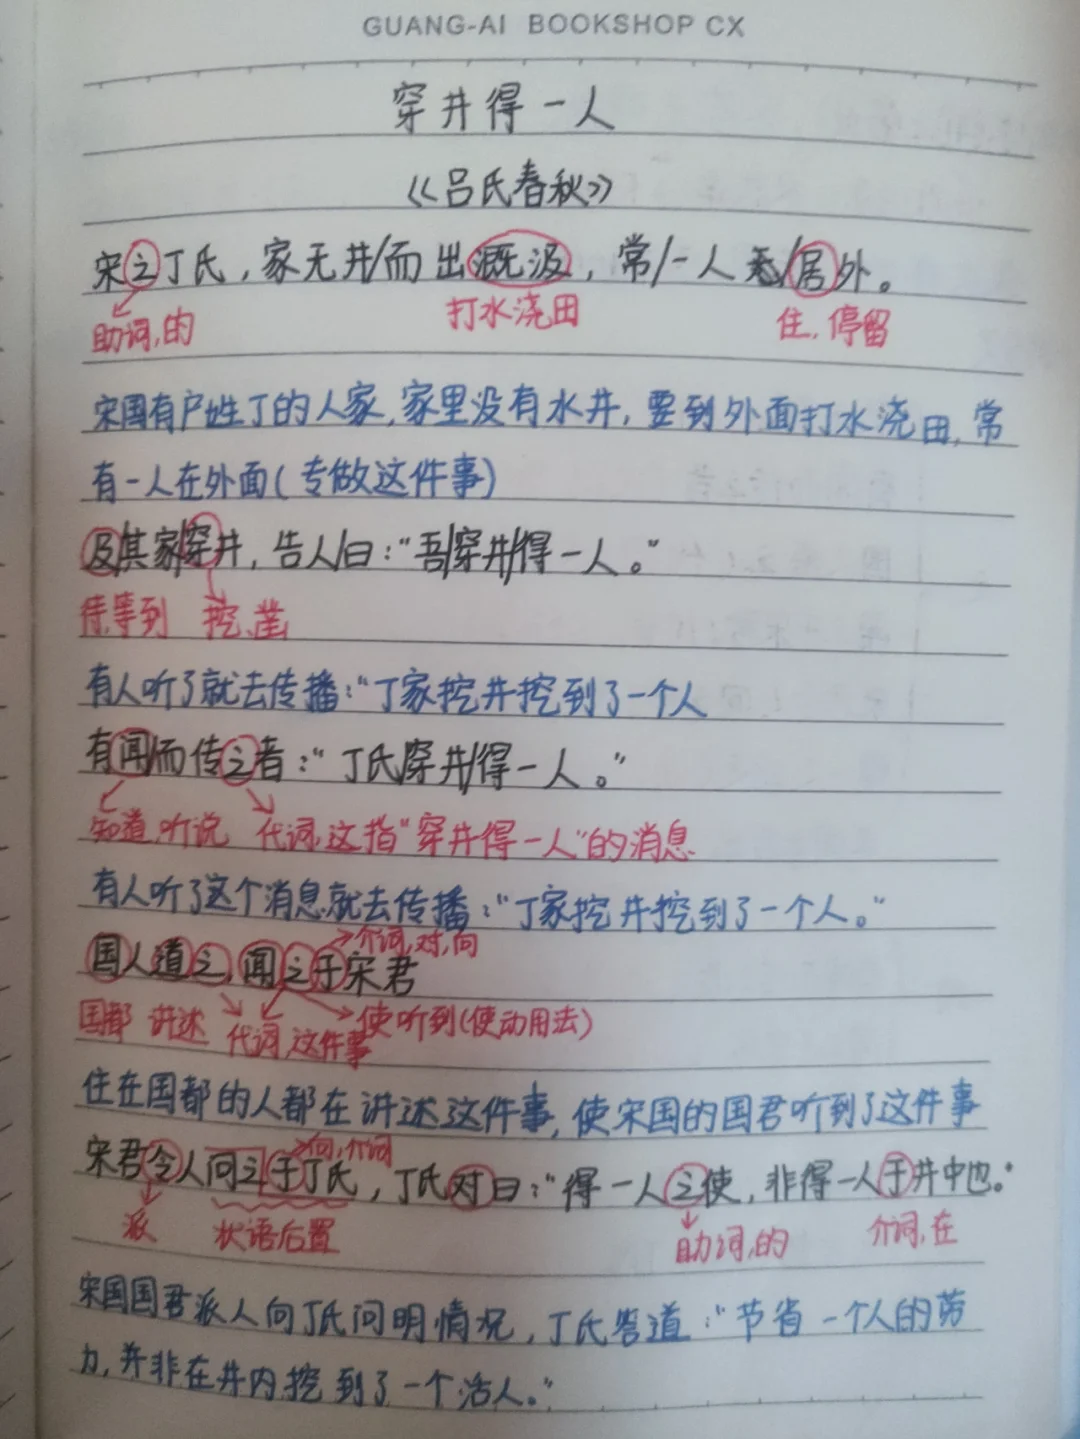 GUANG-AI BOOKSHOP CX
穿井得一人
《吕氏春秋》
宋之丁氏,家无井/而出溉汲,常/一人/居外。
助词,的 打水浇田 住,停留
宋国有户姓丁的人家,家里没有水井,要到外面打水浇田,常
有一人在外面(专做这件事)
及/其家/穿井,告人/曰:“吾/穿井/得一人。”
待,等到 挖,凿
有人听了就去传播:“丁家挖井挖到了一个人
有闻/而传之者:“丁氏/穿井/得一人。”
知道,听说 代词,这指“穿井得一人”的消息
有人听了这个消息就去传播:“丁家挖井挖到了一个人。”
介词,对,向
国人道之,闻之于宋君
国都 讲述 代词,这件事 使听到(使动用法)
住在国都的人都在讲述这件事,使宋国的国君听到了这件事
向,介词
宋君令人问之于丁氏,丁氏对曰:“得一人之使,非得一人于井中也。”
派 状语后置 助词,的 介词,在
宋国国君派人向丁氏问明情况,丁氏答道:“节省一个人的劳
力,并非在井内挖到了一个活人。”